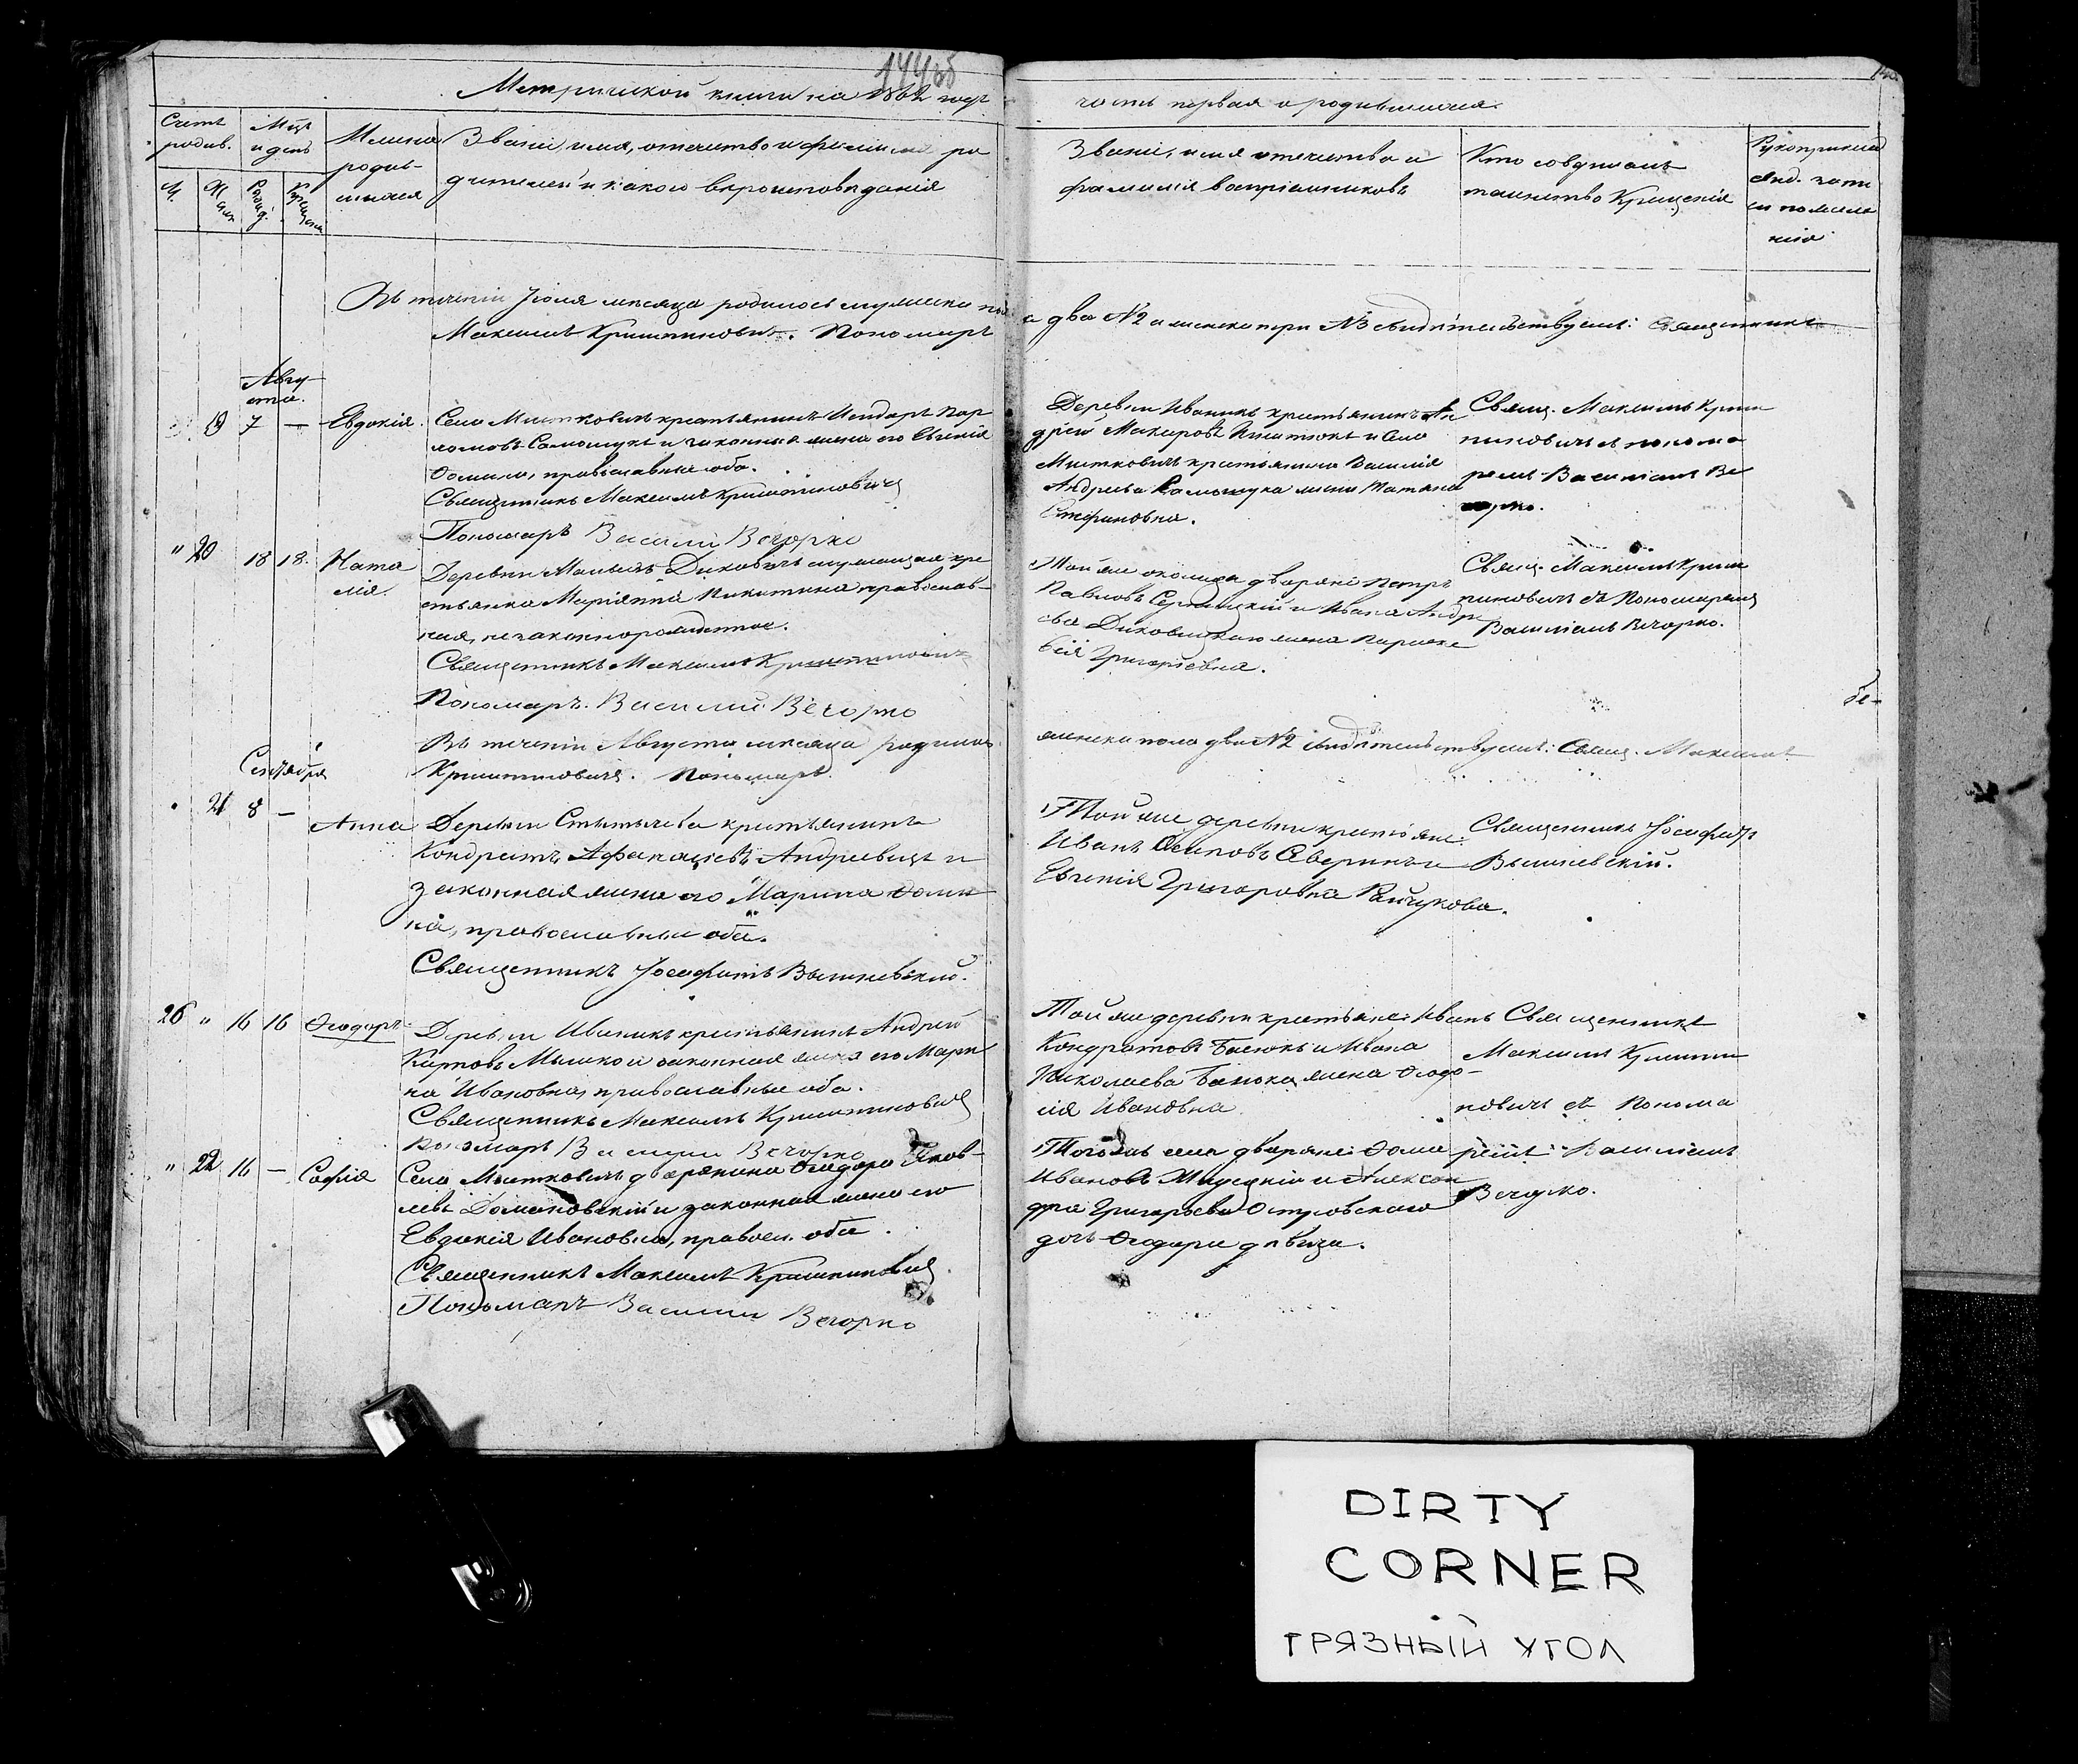 144 об
Метрической книги на 1862 годъ
часть первая о родившихся.
Счетъ родив.
М.
Жен.
Мцъ и день
Рожд.
Крещенія
Имена родив-
шихся
Званіе, имя, отечество и фамилія ро
дителей и какого вероисповеданія
Званіе, имя отечество и
фамилія воспріемниковъ
Кто совершалъ
таинство Крещенія
Рукоприклад
Въ теченіи Іюля месяца родилось мужеска пол
а два №2 а женска три №3 свидѣтельствуемъ: Священникъ
Максимъ Криштиновичъ. Пономарь
Авгу-
ста.
19 7 — Евдокія.
Села Мытковичъ крестьянинъ
Самощукъ и законная жена его Евгенія
Фомина, православные оба.
Священникъ Максимъ Криштиновичъ
Пономарь Василій Вечорко
Деревни Иваникъ крестьянинъ Ан
дрей Макаровъ и Села
Мытковичъ крестьянина Василія
Андреева Самощука жена Татьяна
Стефановна.
Свящ. Максимъ Кришти
новичъ съ понома
ремъ Василіемъ Ве
чорко.
" 20 18 18. Ната
лія.
Деревни Диковичъ кре
стьянка Маріанна Никитина православ-
ная, незаконнорожденное.
Священникъ Максимъ Криштиновичъ
Пономарь. Василій Вечорко
Той же околицы дворяне Петръ
Павловъ и Ивана Андре
ева Диковицкаго жена Параске
вія Григорьевна.
Свящ. Максимъ Кришти
новичъ съ Пономаремъ
Василіемъ Вечорко.
Въ теченіи Августа месяца родилось
женска пола два №2 свидѣтельствуемъ: Свящ. Максимъ
Криштиновичъ. Пономарь.
Сентября
21 8 — Анна
Деревни Стытычева крестьянинъ
Кондратъ Афанасіевъ Андреевецъ и
законная жена его Марина Фоми
на, православные оба.
Священникъ Іосафатъ Вышневскій.
Той же деревни крестьяне:
Иванъ Осиповъ Северинъ и
Евгенія Григоровна Райчукова.
Священникъ Іосафатъ
Вышневскій.
20 " 16 16 Ѳеодоръ
Деревни Иваникъ крестьянинъ Андрей
Карповъ Мышко и законная жена его Мари
на Ивановна, православные оба.
Священникъ Максимъ Криштиновичъ
Пономарь Василій Вечорко
Той же деревни крестьяне: Иванъ
Кондратовъ Басюкъ и Ивана
Николаева Басюка жена Ѳеодо-
сія Ивановна
Священникъ
Максимъ Кришти
новичъ съ Понома
ремъ Василіемъ
Вечорко.
" 22 16 — Софія
Села Мытковичъ дворянина Ѳеодора Яков-
левъ Домановскій и законная жена его
Евдокія Ивановна, правосл. оба.
Священникъ Максимъ Криштиновичъ
Пономарь Василій Вечорко
Того же села дворяне: Фома
Ивановъ и Алексан
дра Григорьева Островскаго
дочь Ѳеодора дѣвица.
DIRTY
CORNER
ГРЯЗНЫЙ УГОЛ